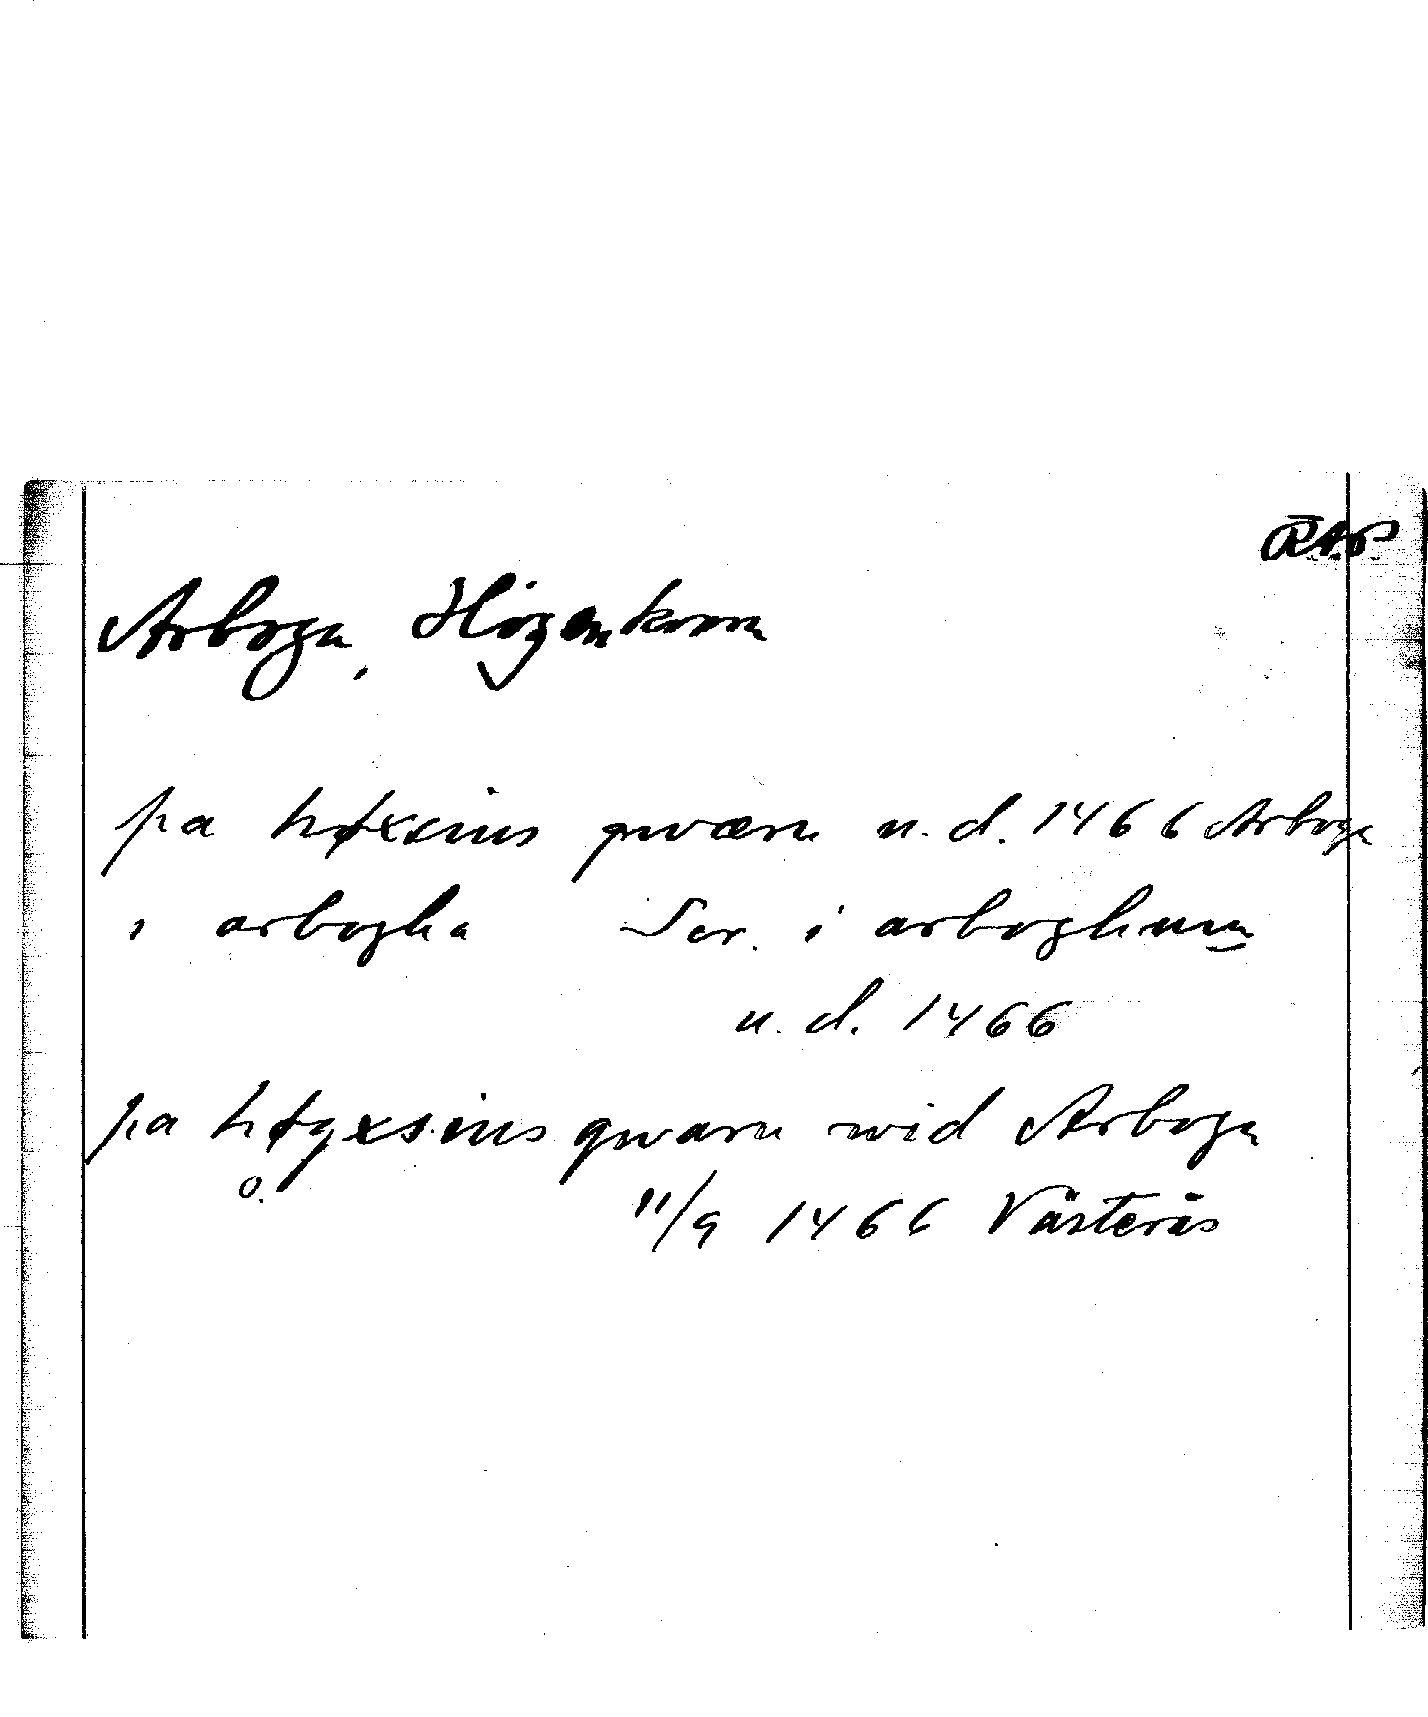 RAP
Arboga, Högenkvarn
pa høxsins qwærn u. d. 1466 Arboga
i arbogha Scr. i arboghum
u. d. 1466
pa høgxsins qwarn wid Arboga
o. 11/9 1466 Västerås